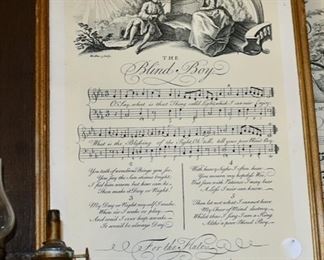 THE
Blind Boy
O Say, what is that Thing call'd Light, which I can ne'er Enjoy;
What is the Blessing of the Sight, O tell your poor Blind Boy.
2
You talk of wond'rous things you see,
You say the Sun shines bright;
I feel him warm but how can he
Then make it Day or Night?
3
My Day or Night my self I make
When e'er I wake or play,
And could I ever keep awake
It would be always Day.
4
With heavy sighs I often hear
You mourn my hopeless Woe,
But sure with Patience I may bear
A Loss I ne'er can know.
5
Then let not what I cannot have
My Chear of Mind destroy
Whilst thus I sing, I am a King
Altho' a poor Blind Boy.
For the Flute